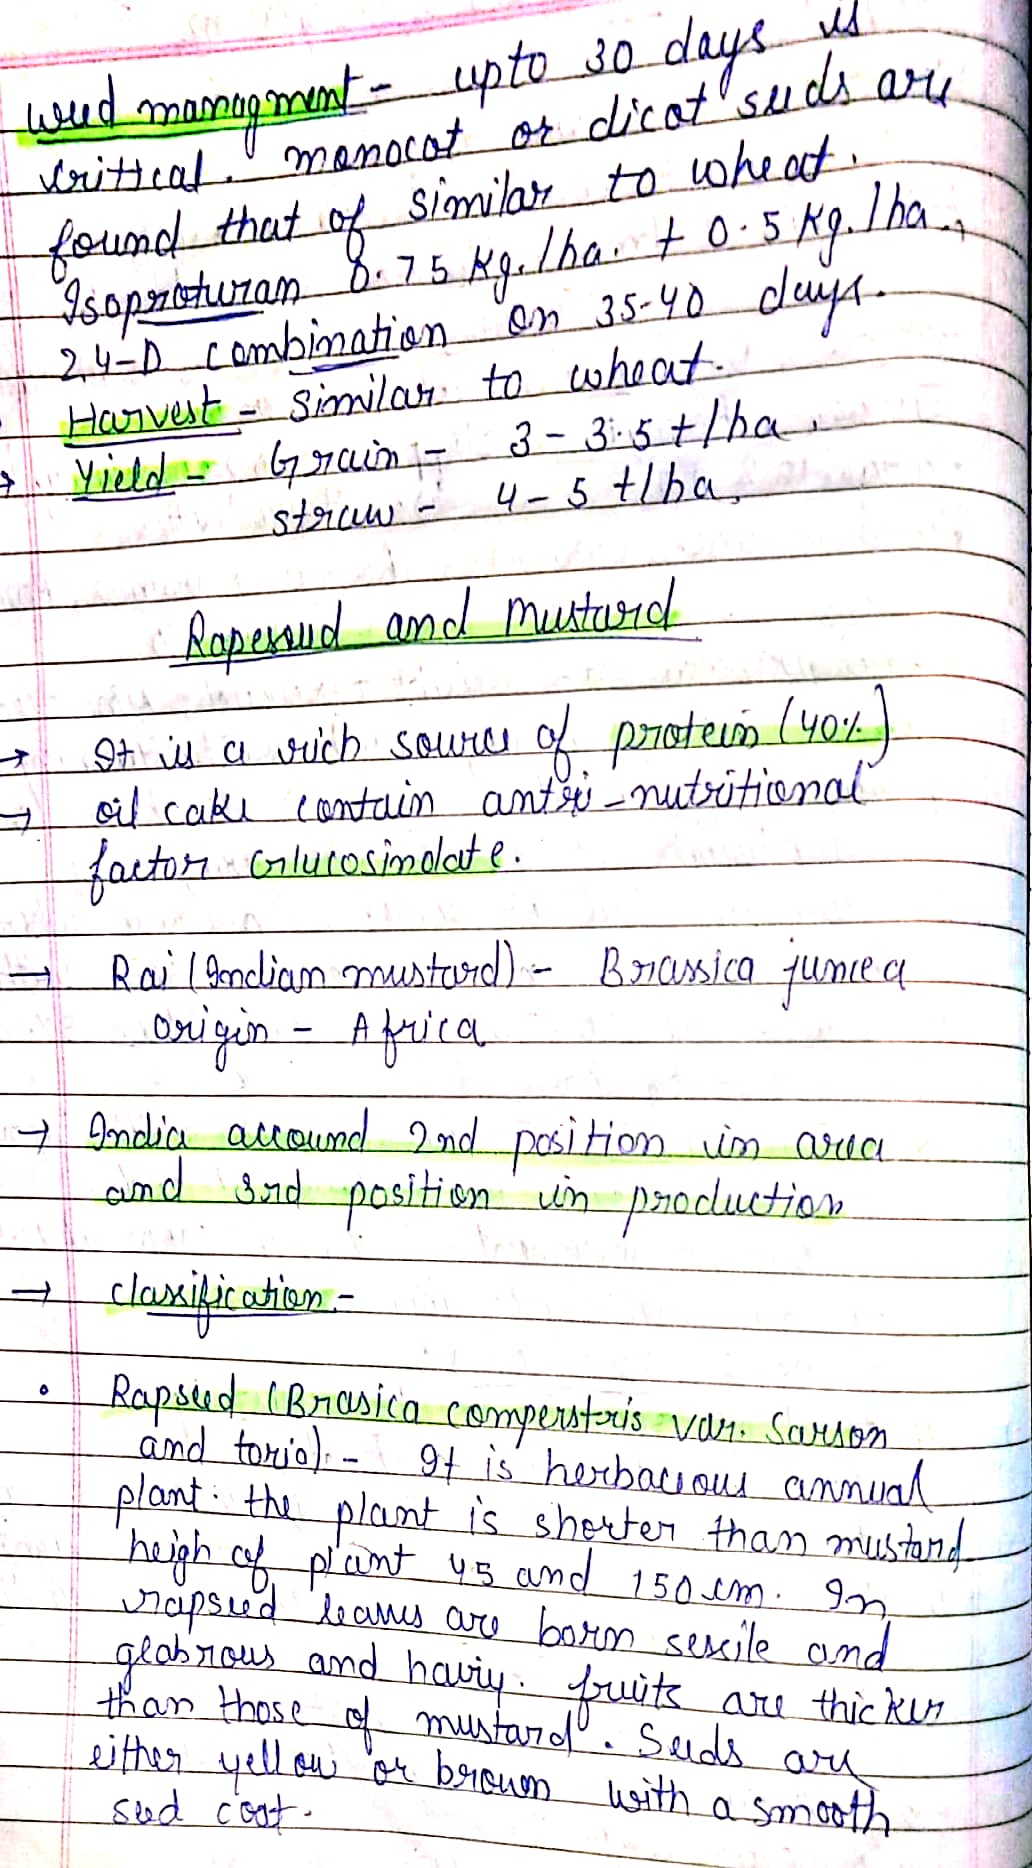 weed managment - upto 30 days is
critical. monocot or dicot seeds are
found that of similar to wheat.
Isoproturan 0.75 kg./ha. + 0.5 kg./ha.,
2,4-D combination on 35-40 days.
Harvest - similar to wheat.
→ Yield - Grain - 3 - 3.5 t/ha.
straw - 4 - 5 t/ha.
Rapeseed and Mustard
→ It is a rich source of protein (40%)
→ oil cake contain anti-nutritional
factor Glucosinolate.
→ Rai (Indian mustard) - Brassica juncea
origin - Africa
→ India accound 2nd position in area
and 3rd position in production
→ classification -
• Rapseed (Brasica comperstris var. Sarson
and toria) - It is herbaceous annual
plant. the plant is shorter than mustard
heigh of plant 45 and 150 cm. In
rapseed leaves are born sessile and
glabrous and hairy. fruits are thicker
than those of mustard. Seeds are
either yellow or brown with a smooth
seed coat.